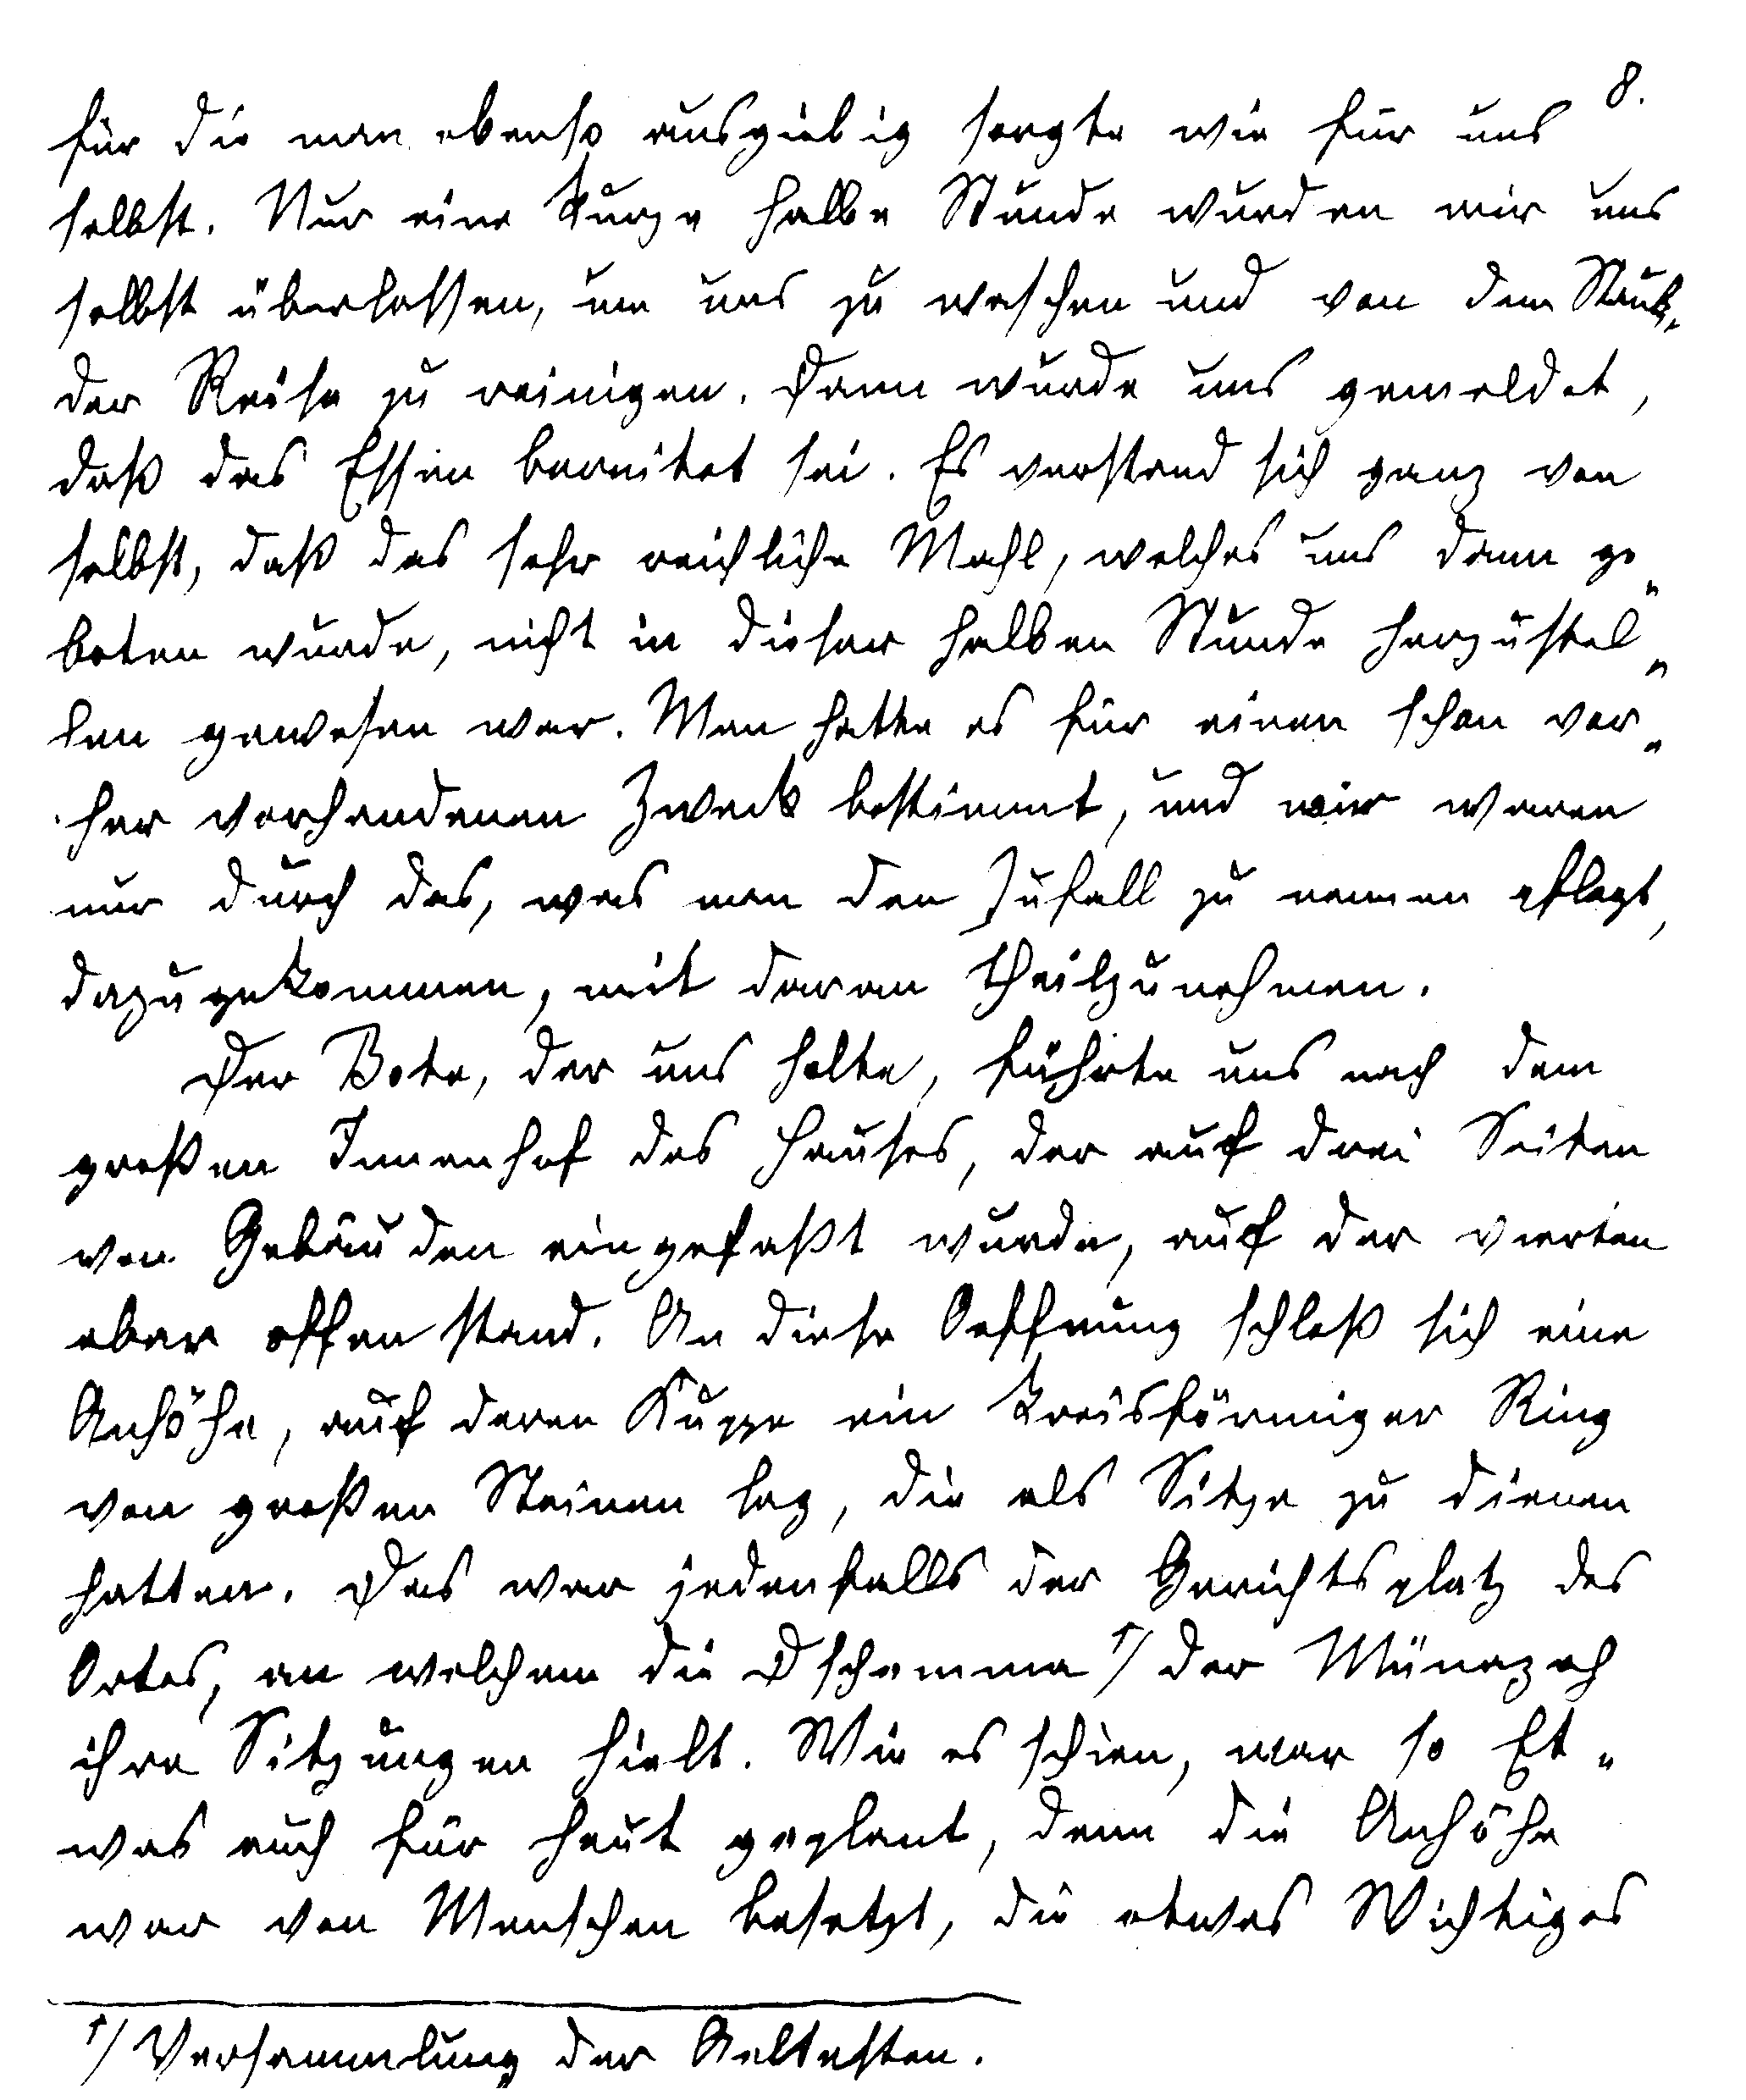 8.
für die man ebenso ausgiebig sorgte wie für uns
selbst. Nur eine kurze halbe Stunde wurden wir uns
selbst überlassen, um uns zu waschen und von dem Staub
der Reise zu reinigen. Dann wurde uns gemeldet,
daß das Essen bereitet sei. Es verstand sich ganz von
selbst, daß das sehr reichliche Mahl, welches uns dann ge„
boten wurde, nicht in dieser halben Stunde herzustel„
len gewesen war. Man hatte es für einen schon vor„
her vorhandenen Zweck bestimmt, und wir waren
nur durch das, was man den Zufall zu nennen pflegt,
dazugekommen, mit daran theilzunehmen.
Der Bote, der uns holte, führte uns nach dem
großen Innenhof des Hauses, der auf drei Seiten
von Gebäuden eingefaßt wurde, auf der vierten
aber offen stand. An diese Oeffnung schloß sich eine
Anhöhe, auf deren Kuppe ein kreisförmiger Ring
von großen Steinen lag, die als Sitze zu dienen
hatten. Das war jedenfalls der Gerichtsplatz des
Ortes, an welchem die Dschemma †/ der Münazah
ihre Sitzungen hielt. Wie es schien, war so Et„
was auch für heut geplant, denn die Anhöhe
war von Menschen besetzt, die etwas Wichtiges
†/ Versammlung der Aeltesten.